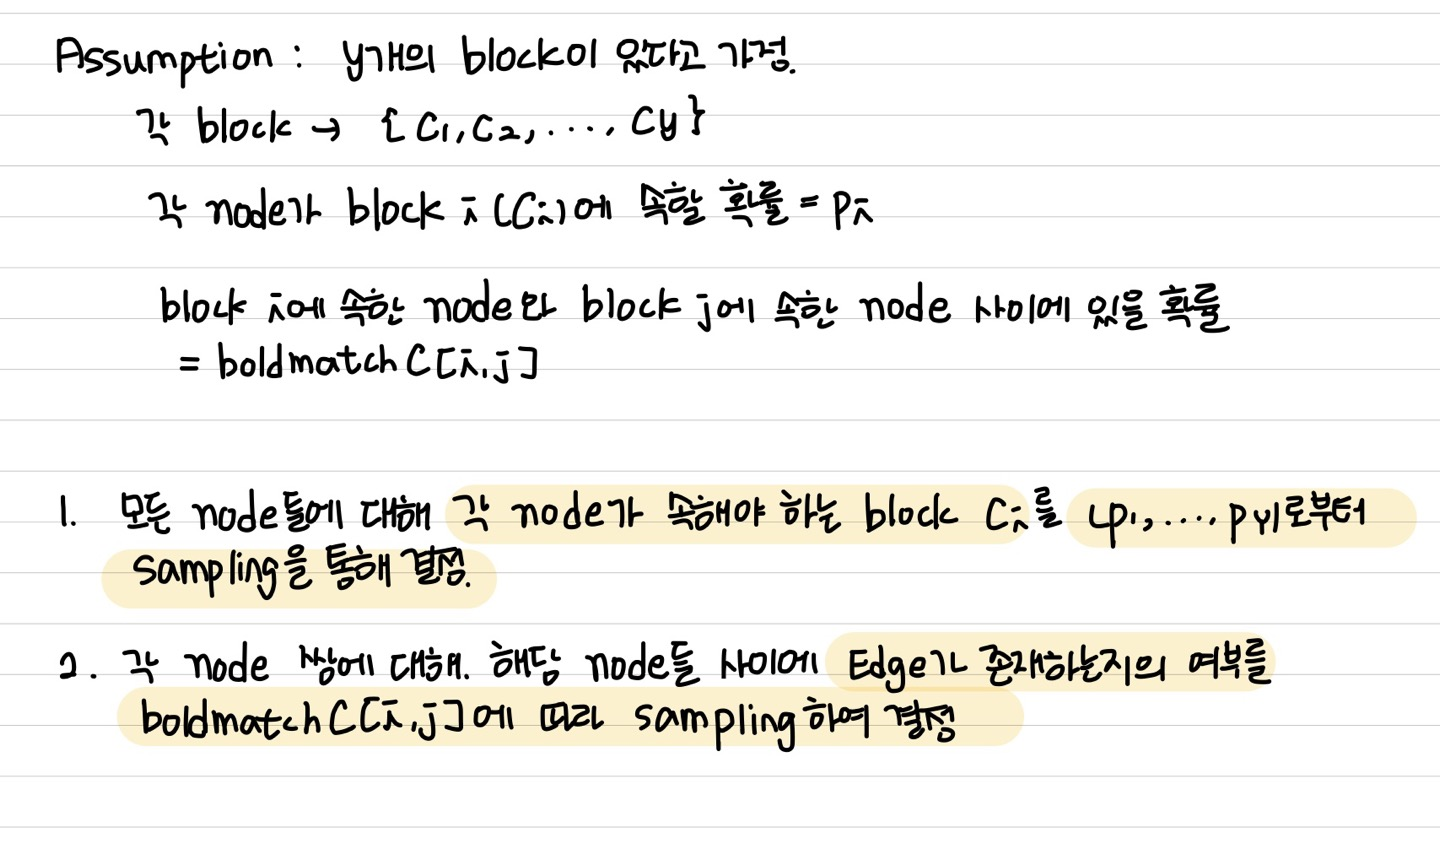 Assumption : y개의 block이 있다고 가정.
각 block → {C1, C2, ..., Cy}
각 node가 block i (Ci)에 속할 확률 = pi
block i에 속한 node와 block j에 속한 node 사이에 있을 확률
= boldmatch C[i,j]
1. 모든 node들에 대해 각 node가 속해야 하는 block Ci를 (p1, ..., py)로부터
sampling을 통해 결정.
2. 각 node 쌍에 대해. 해당 node들 사이에 Edge가 존재하는지의 여부를
boldmatch C[i,j]에 따라 sampling하여 결정